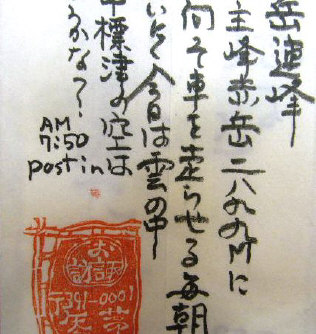 岳連峰
主峰赤岳二八九九Mに
向って車を走らせる毎朝
いそ今日は雲の中
中標津の空は
うかな?
AM
7:50
post in
391-
0001